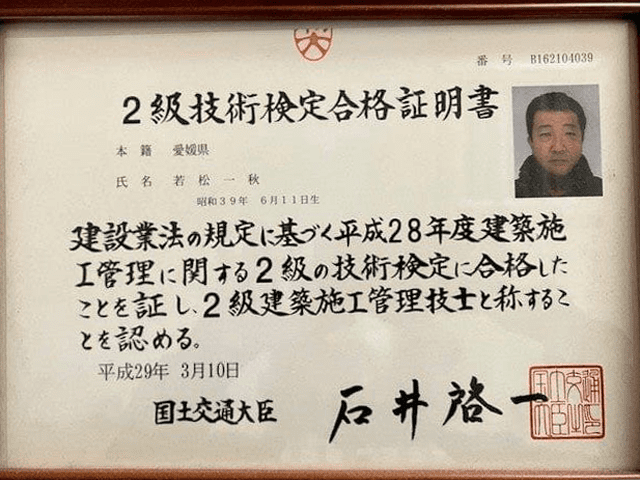 番号 B162104039
2級技術検定合格証明書
本籍 愛媛県
氏名 若松一秋
昭和39年 6月11日生
建設業法の規定に基づく平成28年度建築施
工管理に関する2級の技術検定に合格した
ことを証し、2級建築施工管理技士と称するこ
とを認める。
平成29年 3月10日
国土交通大臣 石井啓一